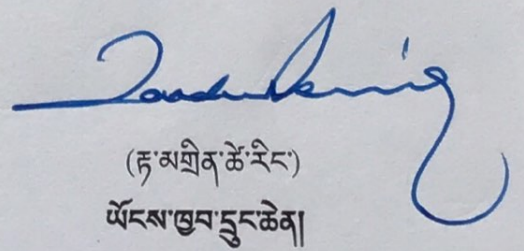 (རྟ་མགྲིན་ཚེ་རིང་)
ཡོངས་ཁྱབ་དྲུང་ཆེན།